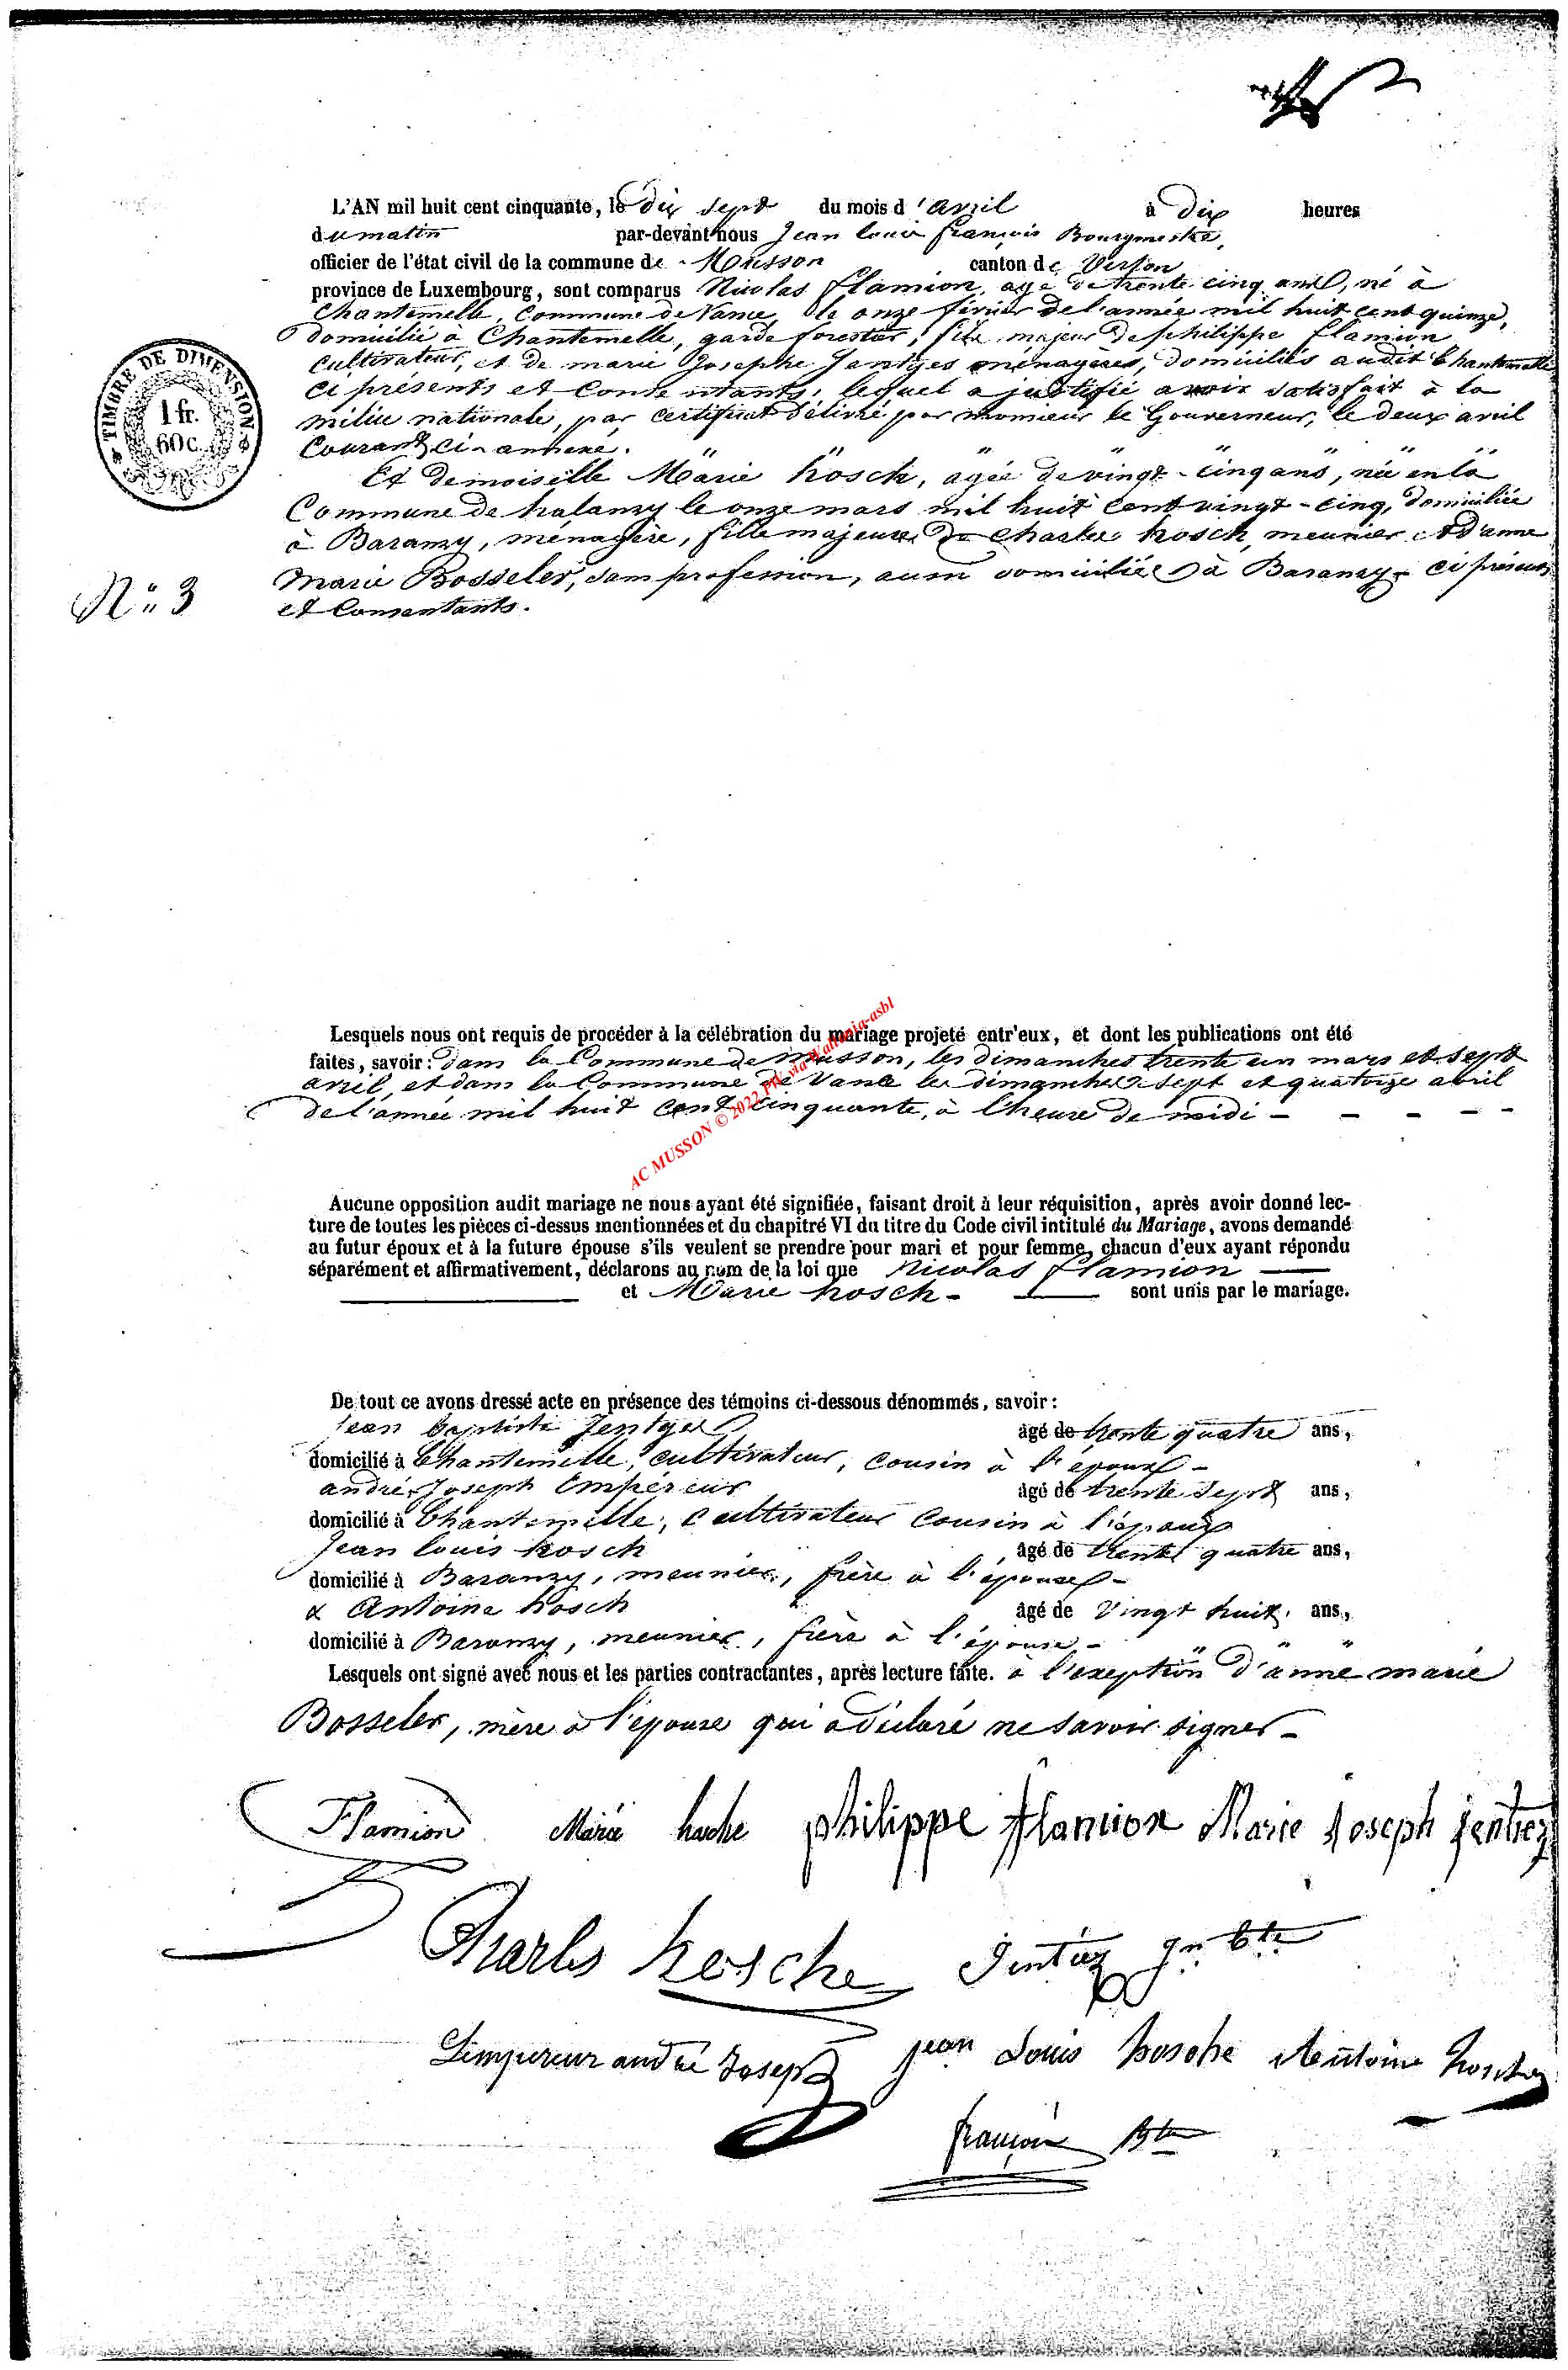 L'AN mil huit cent cinquante, le dix sept du mois d'avril à dix heures
du matin par-devant nous Jean Louis françois Bourgmestre,
officier de l'état civil de la commune de Musson canton de Virton
province de Luxembourg, sont comparus Nicolas flamion, agé de trente cinq ans, né à
Chantemelle, Commune de Vance, le onze février de l'année mil huit cent quinze,
domicilié à Chantemelle, garde forestier, fils majeur de philippe flamion
cultivateur, et de marie Josephe Jentges ménagères, domiciliés audit Chantemelle
ci présents et consentants, lequel a justifié avoir satisfait à la
milice nationale, par certificat délivré par monsieur le Gouverneur, le deux avril
Courant, ci-annexé.
Et demoiselle Marie hosch, agée de vingt-cinq ans, née en la
Commune de halanzy le onze mars mil huit cent vingt-cinq, domiciliée
à Baranzy, ménagère, fille majeure de Charles hosch, meunier et d'anne
Marie Bosseler, sans profession, aussi domiciliés à Baranzy ci présents
et Consentants.
TIMBRE DE DIMENSION.
1 fr.
60 c.
N° 3
Lesquels nous ont requis de procéder à la célébration du mariage projeté entr'eux, et dont les publications ont été
faites, savoir: dans la Commune de Musson, les dimanches trente un mars et sept
avril, et dans la Commune de Vance les dimanches sept et quatorze avril
de l'année mil huit cent cinquante, à l'heure de midi - - - - -
AC MUSSON © 2022 via Wallonia-asbl
Aucune opposition audit mariage ne nous ayant été signifiée, faisant droit à leur réquisition, après avoir donné lec-
ture de toutes les pièces ci-dessus mentionnées et du chapitré VI du titre du Code civil intitulé du Mariage, avons demandé
au futur époux et à la future épouse s'ils veulent se prendre pour mari et pour femme, chacun d'eux ayant répondu
séparément et affirmativement, déclarons au nom de la loi que Nicolas flamion
et Marie hosch - sont unis par le mariage.
De tout ce avons dressé acte en présence des témoins ci-dessous dénommés, savoir:
Jean baptiste Jentges âgé de trente quatre ans,
domicilié à Chantemelle, cultivateur, cousin à l'époux -
andré Joseph Empereur âgé de trente sept ans,
domicilié à Chantemelle, cultivateur cousin à l'époux
Jean louis hosch âgé de trente quatre ans,
domicilié à Baranzy, meunier, frère à l'épouse -
& Antoine hosch âgé de vingt huit ans,
domicilié à Baranzy, meunier, frère à l'épouse -
Lesquels ont signé avec nous et les parties contractantes, après lecture faite. à l'exeption d'anne marie
Bosseler, mère à l'épouse qui a déclaré ne savoir signer -
Flamion Marie hosche philippe flamion Marie Joseph jentiez
Charles hosche Jentiez Jn Bte
Lempereur andré Joseph jean Louis hosche Antoine hosche
françois Btre